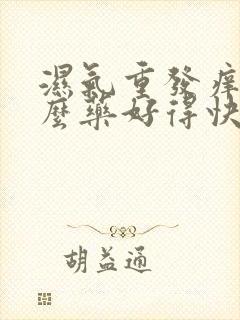 濕氣重發痒
麼藥好得快
胡益通